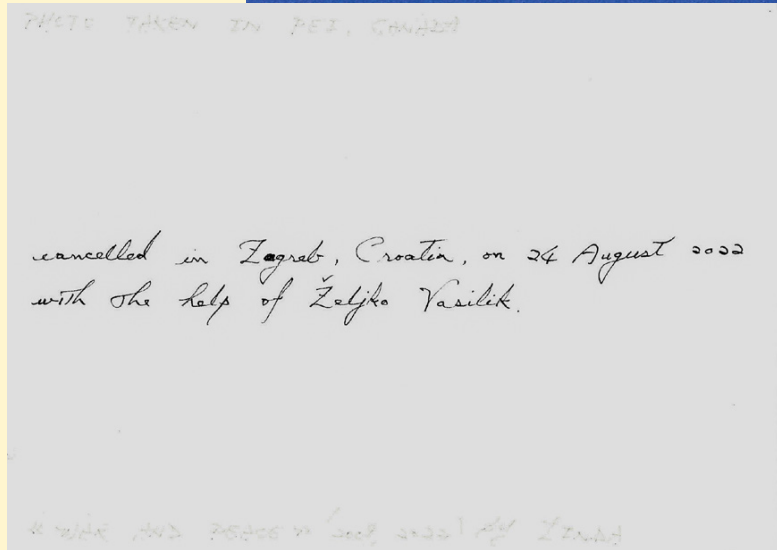 PHOTO TAKEN IN PEI, CANADA
cancelled in Zagreb, Croatia, on 24 August 2022
with the help of Željko Vasilik.